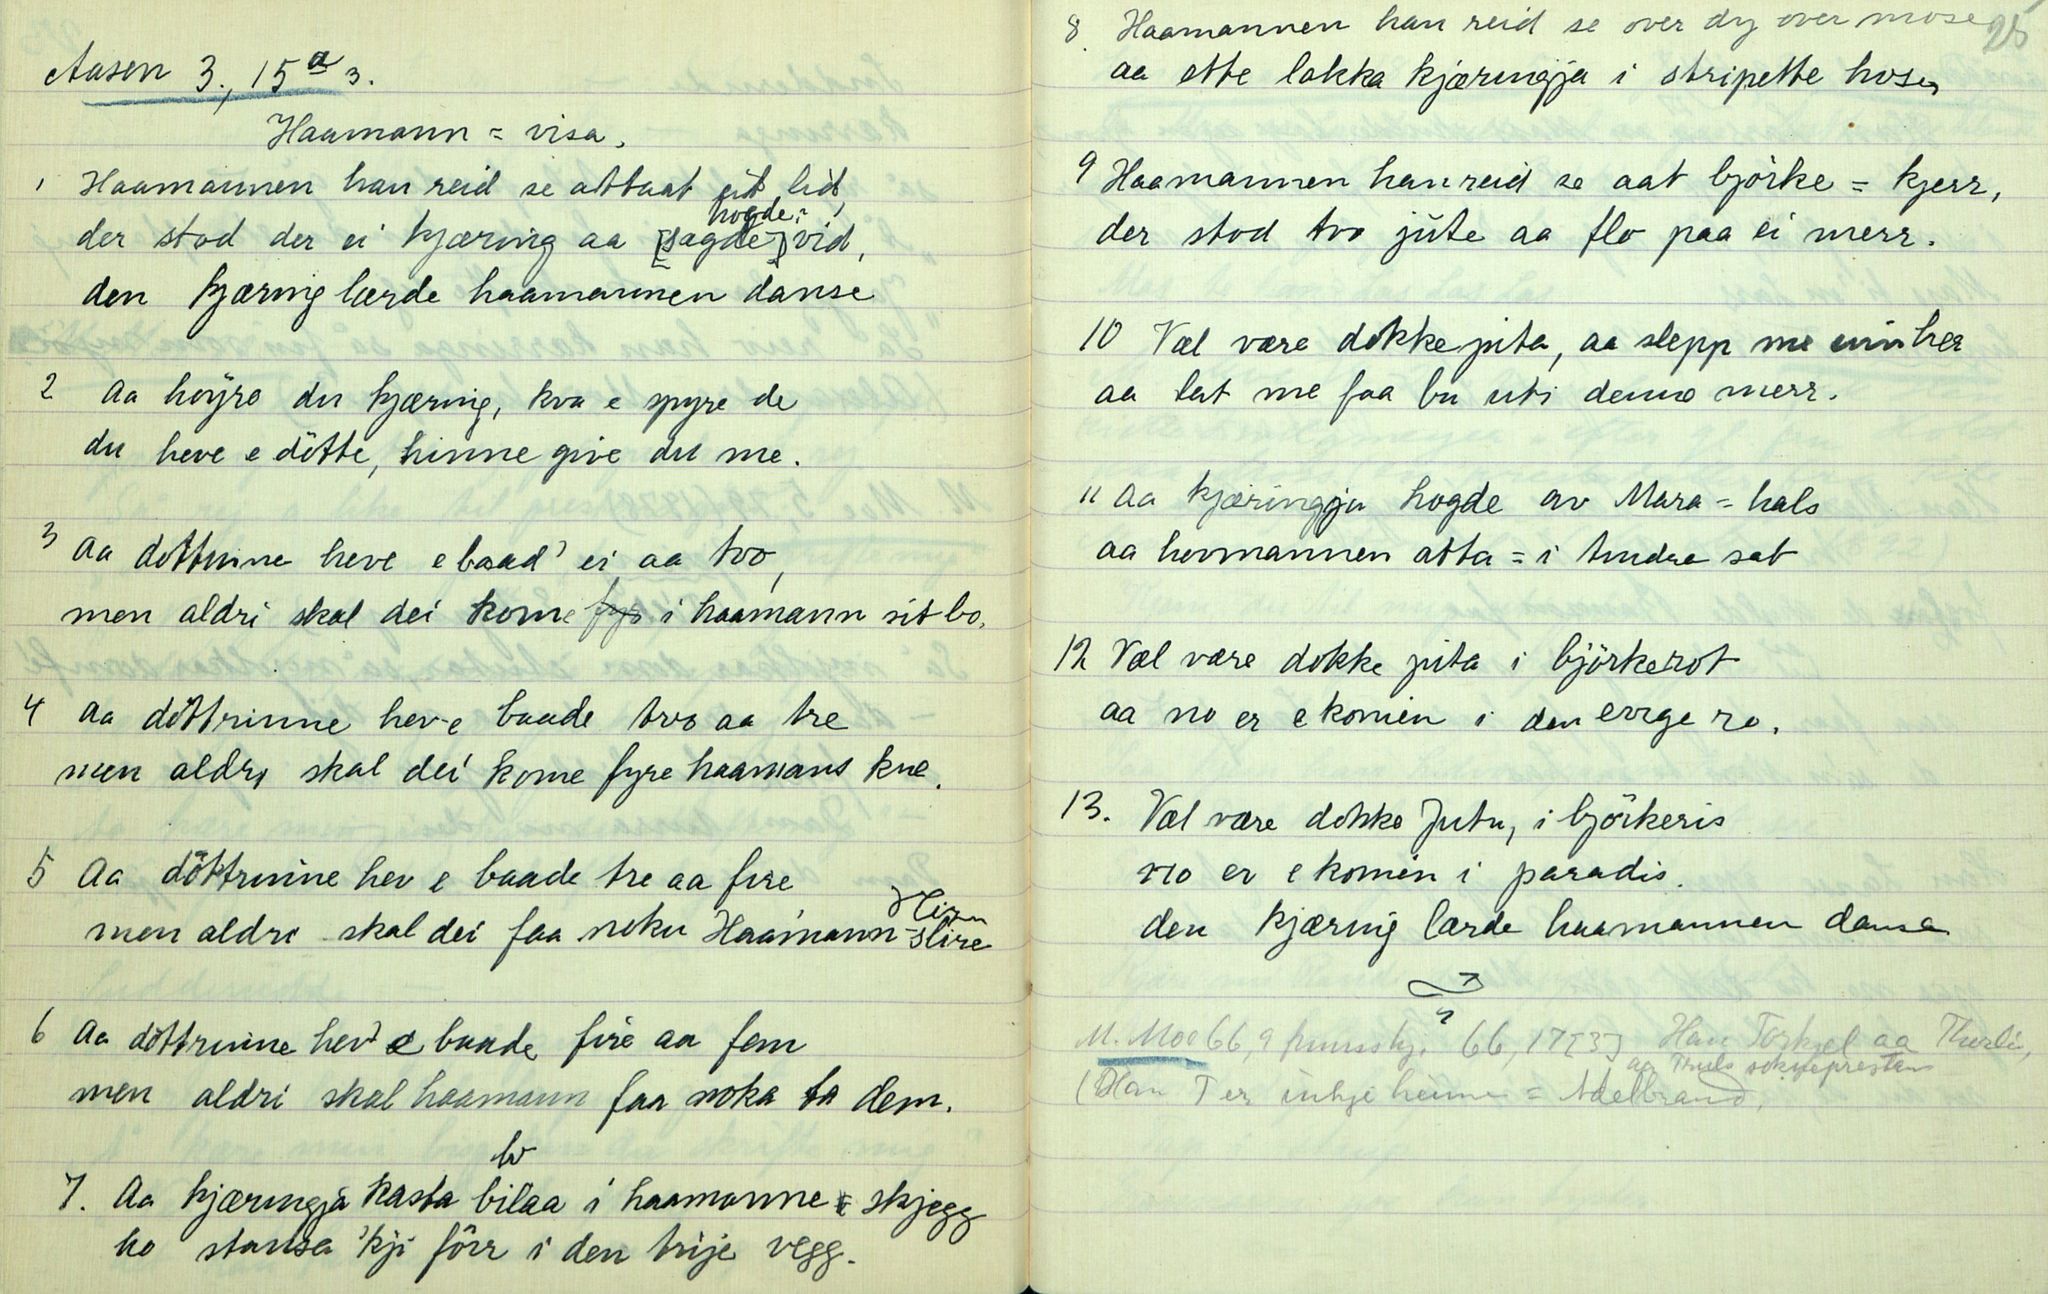 Aasen 3., 15 a 3.
Haamann = visa.
1 Haamannen han reid se attaat eit lid,
hogde
der stod der ei kjæring aa [sagde] vid,
den kjæring lærde haamannen danse
2 Aa höyre du kjæring, kva e spyre de
du heve e dötte, hinne give du me.
3 Aa dottrinne heve e baad' ei aa tvo,
men aldri skal dei kome fyre i haamann sit bo.
4 Aa döttrinne hev e baade tvo aa tre
men aldri skal dei kome fyre haamans kne.
5 Aa döttrinne hev e baade tre aa fire
men aldri skal dei faa noku Haamann-slire
6 Aa döttrinne hev e baade fire aa fem
men aldri skal haamann faa noka ta dem.
bo
7. Aa kjæringja kasta bilaa i haamanne = skjegg
ho stansa 'kji förr i den trije vegg.
25
8 Haamannen han reid se over dy over mose
aa ette lakka kjæringja i stripette hose
9 Haamannen han reid se aat björke = kjerr,
der stod tvo jute aa flo paa ei merr.
10 Væl være dokke juta, aa slepp me inn her
aa lat me faa bu uti denne merr.
11 Aa kjæringja hogde av Mara = hals
aa hermannen atta = i tindra sat
12 Væl være dokke juta i björkerot
aa no er e komen i den evige ro.
13. Væl være dokke Juta, i björkeris
no er e komen i paradis.
den kjæring lærde haamannen danse
M. Moe 66, 9 66, 17 [3] Han Torkjel aa
aa Truls soknepresten
(Han T er inkje heime = Adelbrand.